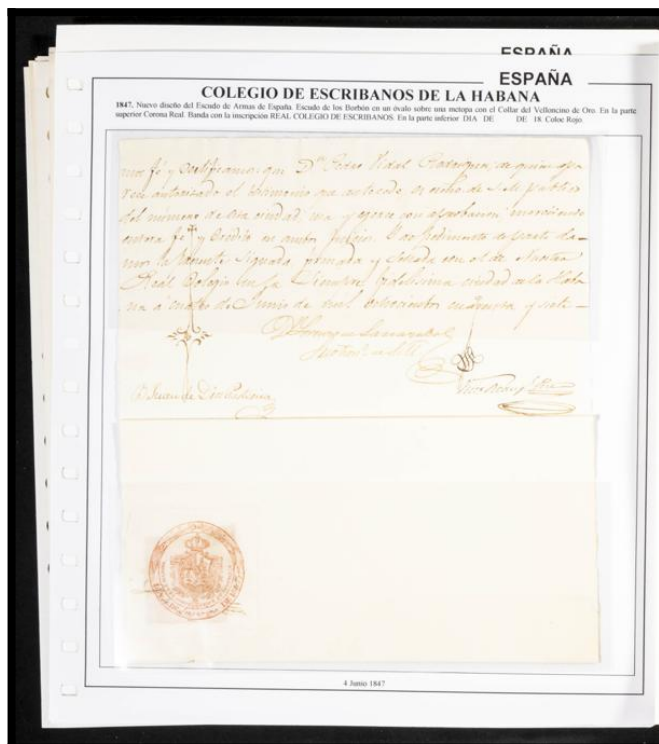 ESPAÑA
ESPAÑA
COLEGIO DE ESCRIBANOS DE LA HABANA
1847. Nuevo diseño del Escudo de Armas de España. Escudo de los Borbón en un óvalo sobre una metopa con el Collar del Velloncino de Oro. En la parte
superior Corona Real. Banda con la inscripción REAL COLEGIO DE ESCRIBANOS. En la parte inferior DIA DE DE 18. Coloe Rojo.
fé y Certificamos que Dn Pedro Vidal Rodriguez, de quien apa
rece autorizado el testimonio que antecede es de S. M. publico
del numero de esta ciudad, y ejerce con aprobacion, mereciendo
entera fé y Credito en ambos Juicios. Y a pedimento de parte da-
mos la presente signada firmada y Sellada con el de Nuestro
Real Colegio en la Siempre fidelisima ciudad de la Haba
na a cuatro de Junio de mil ochocientos cuarenta y siete
Juan de Dios
4 Junio 1847